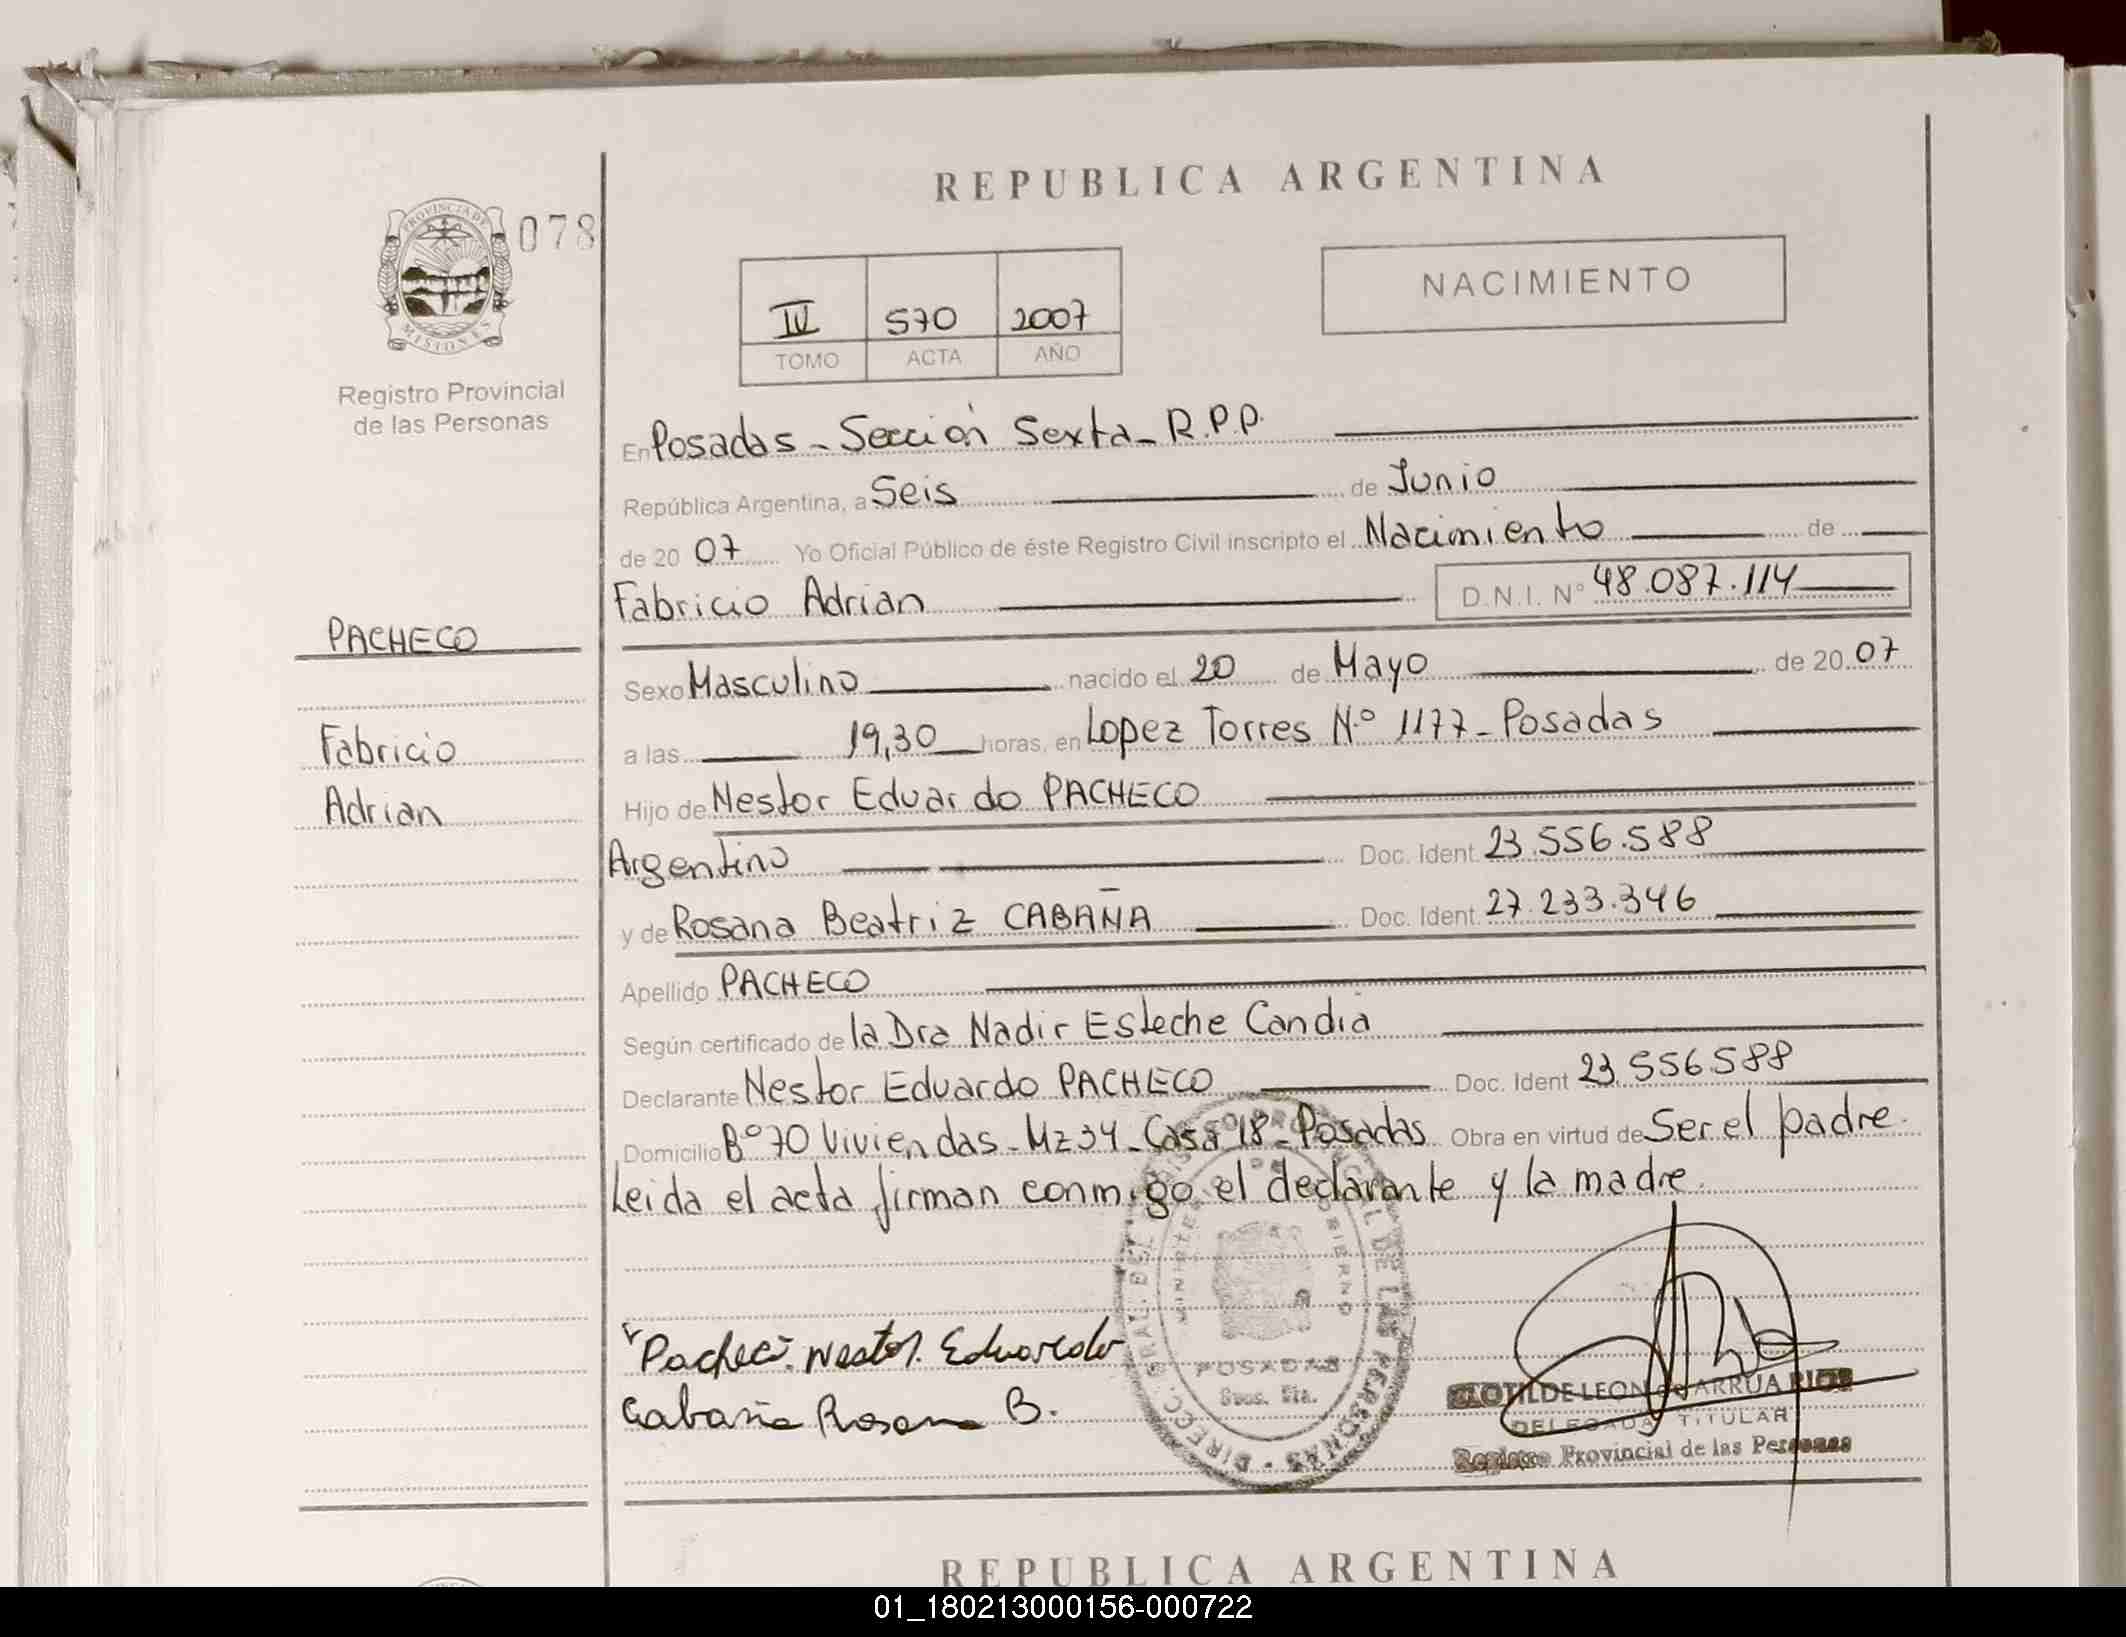 REPUBLICA ARGENTINA
PROVINCIA DE MISIONES
078
NACIMIENTO
IV 570 2007
TOMO ACTA AÑO
Registro Provincial
de las Personas
En Posadas - Sección Sexta - R.P.P.
República Argentina, a Seis de Junio
de 20 07 Yo Oficial Público de éste Registro Civil inscripto el Nacimiento de
Fabricio Adrian D.N.I. N° 48.087.114
PACHECO
Sexo Masculino nacido el 20 de Mayo de 20 07
Fabricio
a las 19,30 horas, en Lopez Torres N.° 1177 - Posadas
Adrian
Hijo de Nestor Eduardo PACHECO
Argentino Doc. Ident. 23.556.588
y de Rosana Beatriz CABAÑA Doc. Ident. 27.233.346
Apellido PACHECO
Según certificado de la Dra Nadir Esteche Candia
Declarante Nestor Eduardo PACHECO Doc. Ident 23.556588
Domicilio B° 70 Viviendas - Mz 34 - Casa 18 - Posadas Obra en virtud de Ser el padre.
Leida el acta firman conmigo el declarante y la madre.
DIRECC. GRAL. DEL REGISTRO PROVINCIAL DE LAS PERSONAS
MINISTERIO DE GOBIERNO
POSADAS
Pacheco. Nestor. Eduardo
Cabaña Rosana B.
CLOTILDE LEON de ARRUA RIOS
DELEGADA TITULAR
Registro Provincial de las Personas
REPUBLICA ARGENTINA
01_180213000156-000722